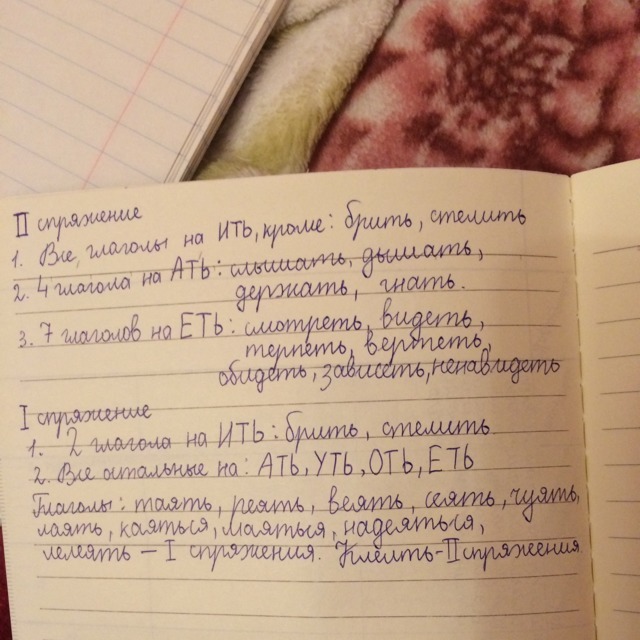 II спряжение
1. Все, глаголы на ИТЬ, кроме: брить, стелить
2. 4 глагола на АТЬ: слышать, дышать,
держать, гнать.
3. 7 глаголов на ЕТЬ: смотреть, видеть,
терпеть, вертеть,
обидеть, зависеть, ненавидеть
I спряжение
1. 2 глагола на ИТЬ: брить, стелить
2. Все остальные на: АТЬ, УТЬ, ОТЬ, ЕТЬ
Глаголы: таять, реять, веять, сеять, чуять,
лаять, каяться, маяться, надеяться,
лелеять — I спряжения. Клеить - II спряжения.